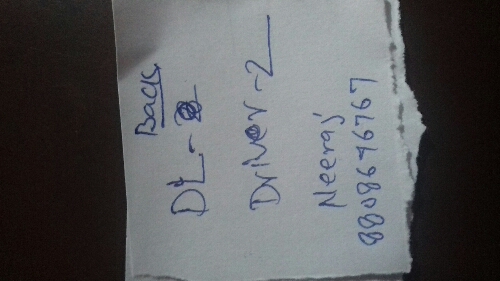 Back
DL-
Driver-2
Neeraj
8808676767